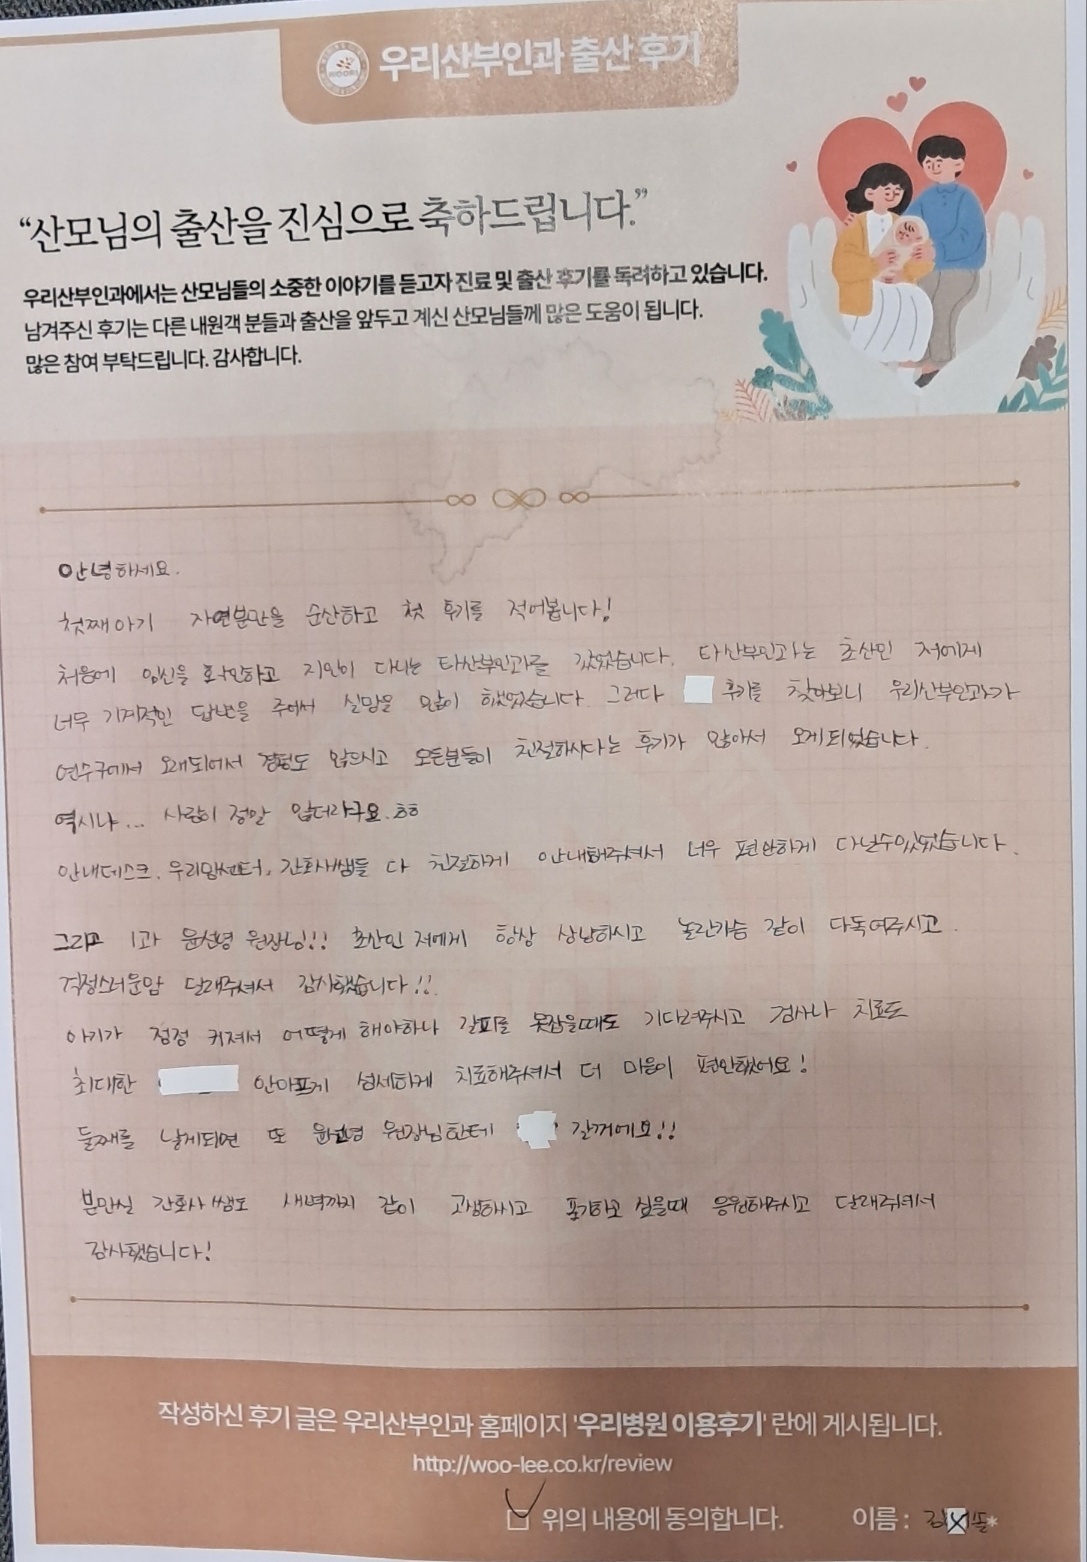 WOORI
우리산부인과 출산 후기
“산모님의 출산을 진심으로 축하드립니다.”
우리산부인과에서는 산모님들의 소중한 이야기를 듣고자 진료 및 출산 후기를 독려하고 있습니다.
남겨주신 후기는 다른 내원객 분들과 출산을 앞두고 계신 산모님들께 많은 도움이 됩니다.
많은 참여 부탁드립니다. 감사합니다.
안녕하세요.
첫째아기 자연분만을 순산하고 첫 후기를 적어봅니다!
처음에 임신을 확인하고 지인이 다니는 타산부인과를 갔었습니다. 타산부인과는 초산인 저에게
너무 기계적인 답변을 주어서 실망을 많이 했었습니다. 그러다 후기를 찾아보니 우리산부인과가
연수구에서 오래되어서 경험도 많으시고 모든분들이 친절하시다는 후기가 많아서 오게되었습니다.
역시나... 사람이 정말 많더라구요.ㅎㅎ
안내데스크, 우리맘센터, 간호사쌤들 다 친절하게 안내해주셔서 너무 편안하게 다닐수있었습니다.
그리고 1과 윤선영 원장님!! 초산인 저에게 항상 상냥하시고 놀란가슴 같이 다독여주시고.
걱정스러운맘 달래주셔서 감사했습니다!!
아기가 점점 커져서 어떻게 해야하나 갈피를 못잡을때도 기다려주시고 검사나 치료도
최대한 안아프게 섬세하게 치료해주셔서 더 마음이 편안했어요!
둘째를 낳게되면 또 윤선영 원장님한테 갈꺼에요!!
분만실 간호사쌤도 새벽까지 같이 고생하시고 포기하고 싶을때 응원해주시고 달래주셔서
감사했습니다!
작성하신 후기 글은 우리산부인과 홈페이지 '우리병원 이용후기' 란에 게시됩니다.
http://woo-lee.co.kr/review
위의 내용에 동의합니다. 이름 :